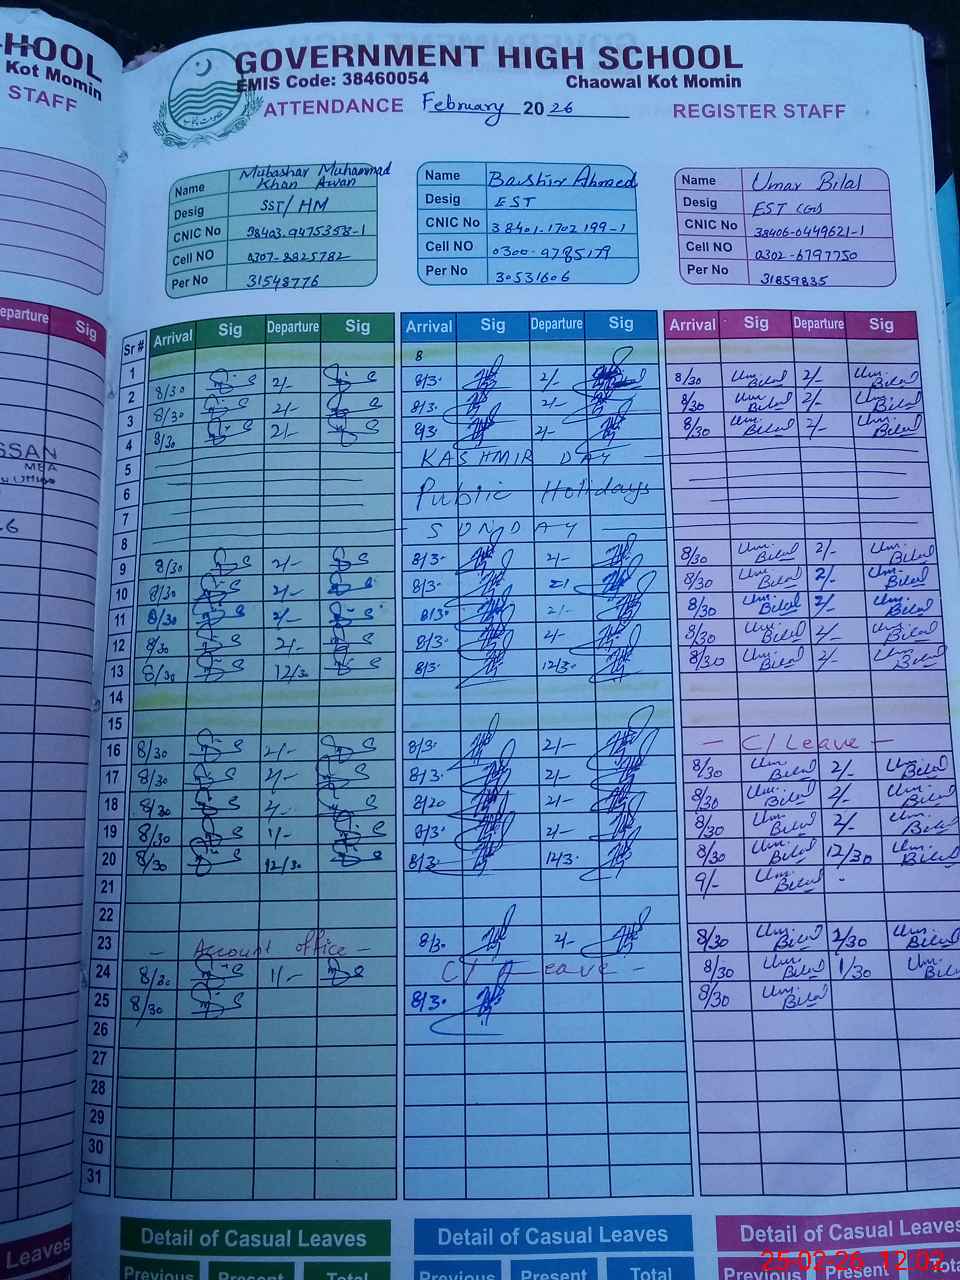 HOOL
Kot Momin
STAFF
GOVERNMENT HIGH SCHOOL
EMIS Code: 38460054
Chaowal Kot Momin
ATTENDANCE February 2026 REGISTER STAFF
Name Mubashar Muhammad Khan Awan
Desig SST/HM
CNIC No
Cell NO 0307-8825782
Per No 31548776
Name Bashir Ahmed
Desig EST
CNIC No 38401-1702199-1
Cell NO 0300-9785179
Per No 30531606
Name Umar Bilal
Desig EST
CNIC No 38406-0449621-1
Cell NO 0302-6797750
Per No 31859835
eparture Sig
Sr # Arrival Sig Departure Sig Arrival Sig Departure Sig Arrival Sig Departure Sig
1 8
2 8/30 2/- 8/3. 2/- 8/30 Um. Bilal 2/- Um. Bilal
3 8/30 2/- 8/3. 2/- 8/30 Um. Bilal 2/- Um. Bilal
4 8/30 2/- 8/3 2/- 8/30 Um. Bilal 2/- Um. Bilal
5 KASHMIR DAY
6 Public Holidays
7
8 SUNDAY
9 8/30 2/- 8/3. 2/- 8/30 Um. Bilal 2/- Um. Bilal
10 8/30 2/- 8/3. 2/ 8/30 Um. Bilal 2/- Um. Bilal
11 8/30 2/- 8/3. 2/- 8/30 Um. Bilal 2/- Um. Bilal
12 8/30 2/- 8/3. 2/- 8/30 Um. Bilal 2/- Um. Bilal
13 8/30 12/30 8/3. 12/3. 8/30 Um. Bilal 2/- Um. Bilal
14
15
16 8/30 2/- 8/3. 2/- - C/Leave -
17 8/30 2/- 8/3. 2/- 8/30 Um. Bilal 2/- Um. Bilal
18 8/30 2/- 8/20 2/- 8/30 Um. Bilal 2/- Um. Bilal
19 8/30 1/- 8/3. 2/- 8/30 Um. Bilal 2/- Um. Bilal
20 8/30 12/30 8/3. 12/3. 8/30 Um. Bilal 12/30 Um. Bilal
21 9/- Um. Bilal -
22
23 - Account office - 8/3. 2/- 8/30 Um. Bilal 2/30 Um. Bilal
24 8/30 1/- C/ Leave - 8/30 Um. Bilal 1/30 Um. Bilal
25 8/30 8/3. 8/30 Um. Bilal
26
27
28
29
30
31
Leaves
Detail of Casual Leaves Detail of Casual Leaves Detail of Casual Leaves
Previous Present Total Previous Present Total Previous Present Total
25-02-26 12:02